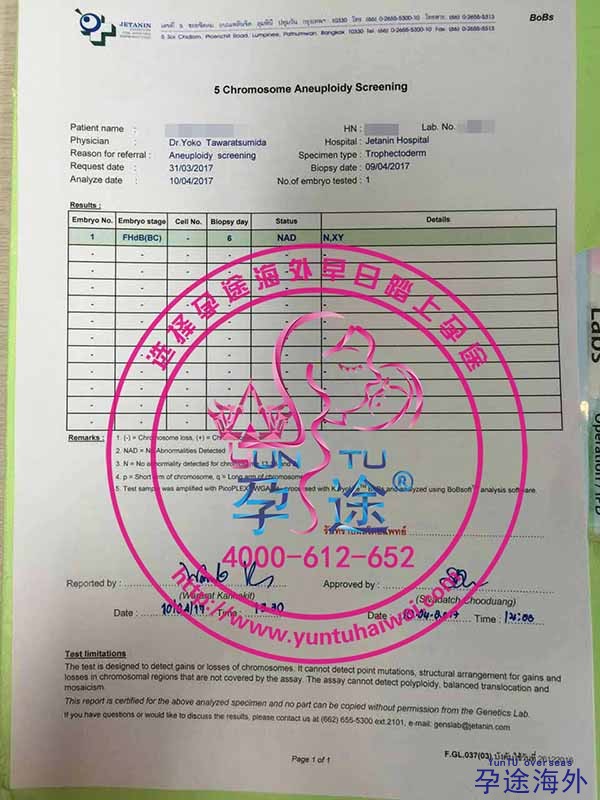 JETANIN
BoBs
5 Soi Chidlom, Ploenchit Road, Lumpinee, Pathumwan, Bangkok 10330 Tel. (66) 0-2655-5300-10 Fax. (66) 0-2655-5313
5 Chromosome Aneuploidy Screening
Patient name : HN : Lab. No.
Physician Dr.Yoko Tawaratsumida Hospital : Jetanin Hospital
Reason for referral : Aneuploidy screening Specimen type : Trophectoderm
Request date : 31/03/2017 Biopsy date : 09/04/2017
Analyze date : 10/04/2017 No.of embryo tested : 1
Results :
Embryo No. Embryo stage Cell No. Biopsy day Status Details
1 FHdB(BC) - 6 NAD N,XY
选择孕途海外早日踏上孕途
Remarks : 1. (-) = Chromosome loss, (+) =
2. NAD = No Abnormalities Detected
3. N = No abnormality detected for
4. p = Short arm of chromosome, q = Long arm of chromosome
5. Test sample was amplified with PicoPLEX processed with analyzed using BoBsoft analysis software.
YUN TU
孕途®
4000-612-652
http://www.yuntuhaiwai.com/
Reported by : Approved by :
(Warasit Kannakit) Chooduang)
Date : Time : Date : Time :
Test limitations
The test is designed to detect gains or losses of chromosomes. It cannot detect point mutations, structural arrangement for gains and
losses in chromosomal regions that are not covered by the assay. The assay cannot detect polyploidy, balanced translocation and
mosaicism.
This report is certified for the above analyzed specimen and no part can be copied without permission from the Genetics Lab.
If you have questions or would like to discuss the results, please contact us at (662) 655-5300 ext.2101, e-mail: genslab@jetanin.com
Page 1 of 1
F.GL.037(03)
YunTU overseas
孕途海外
Labs
Operation